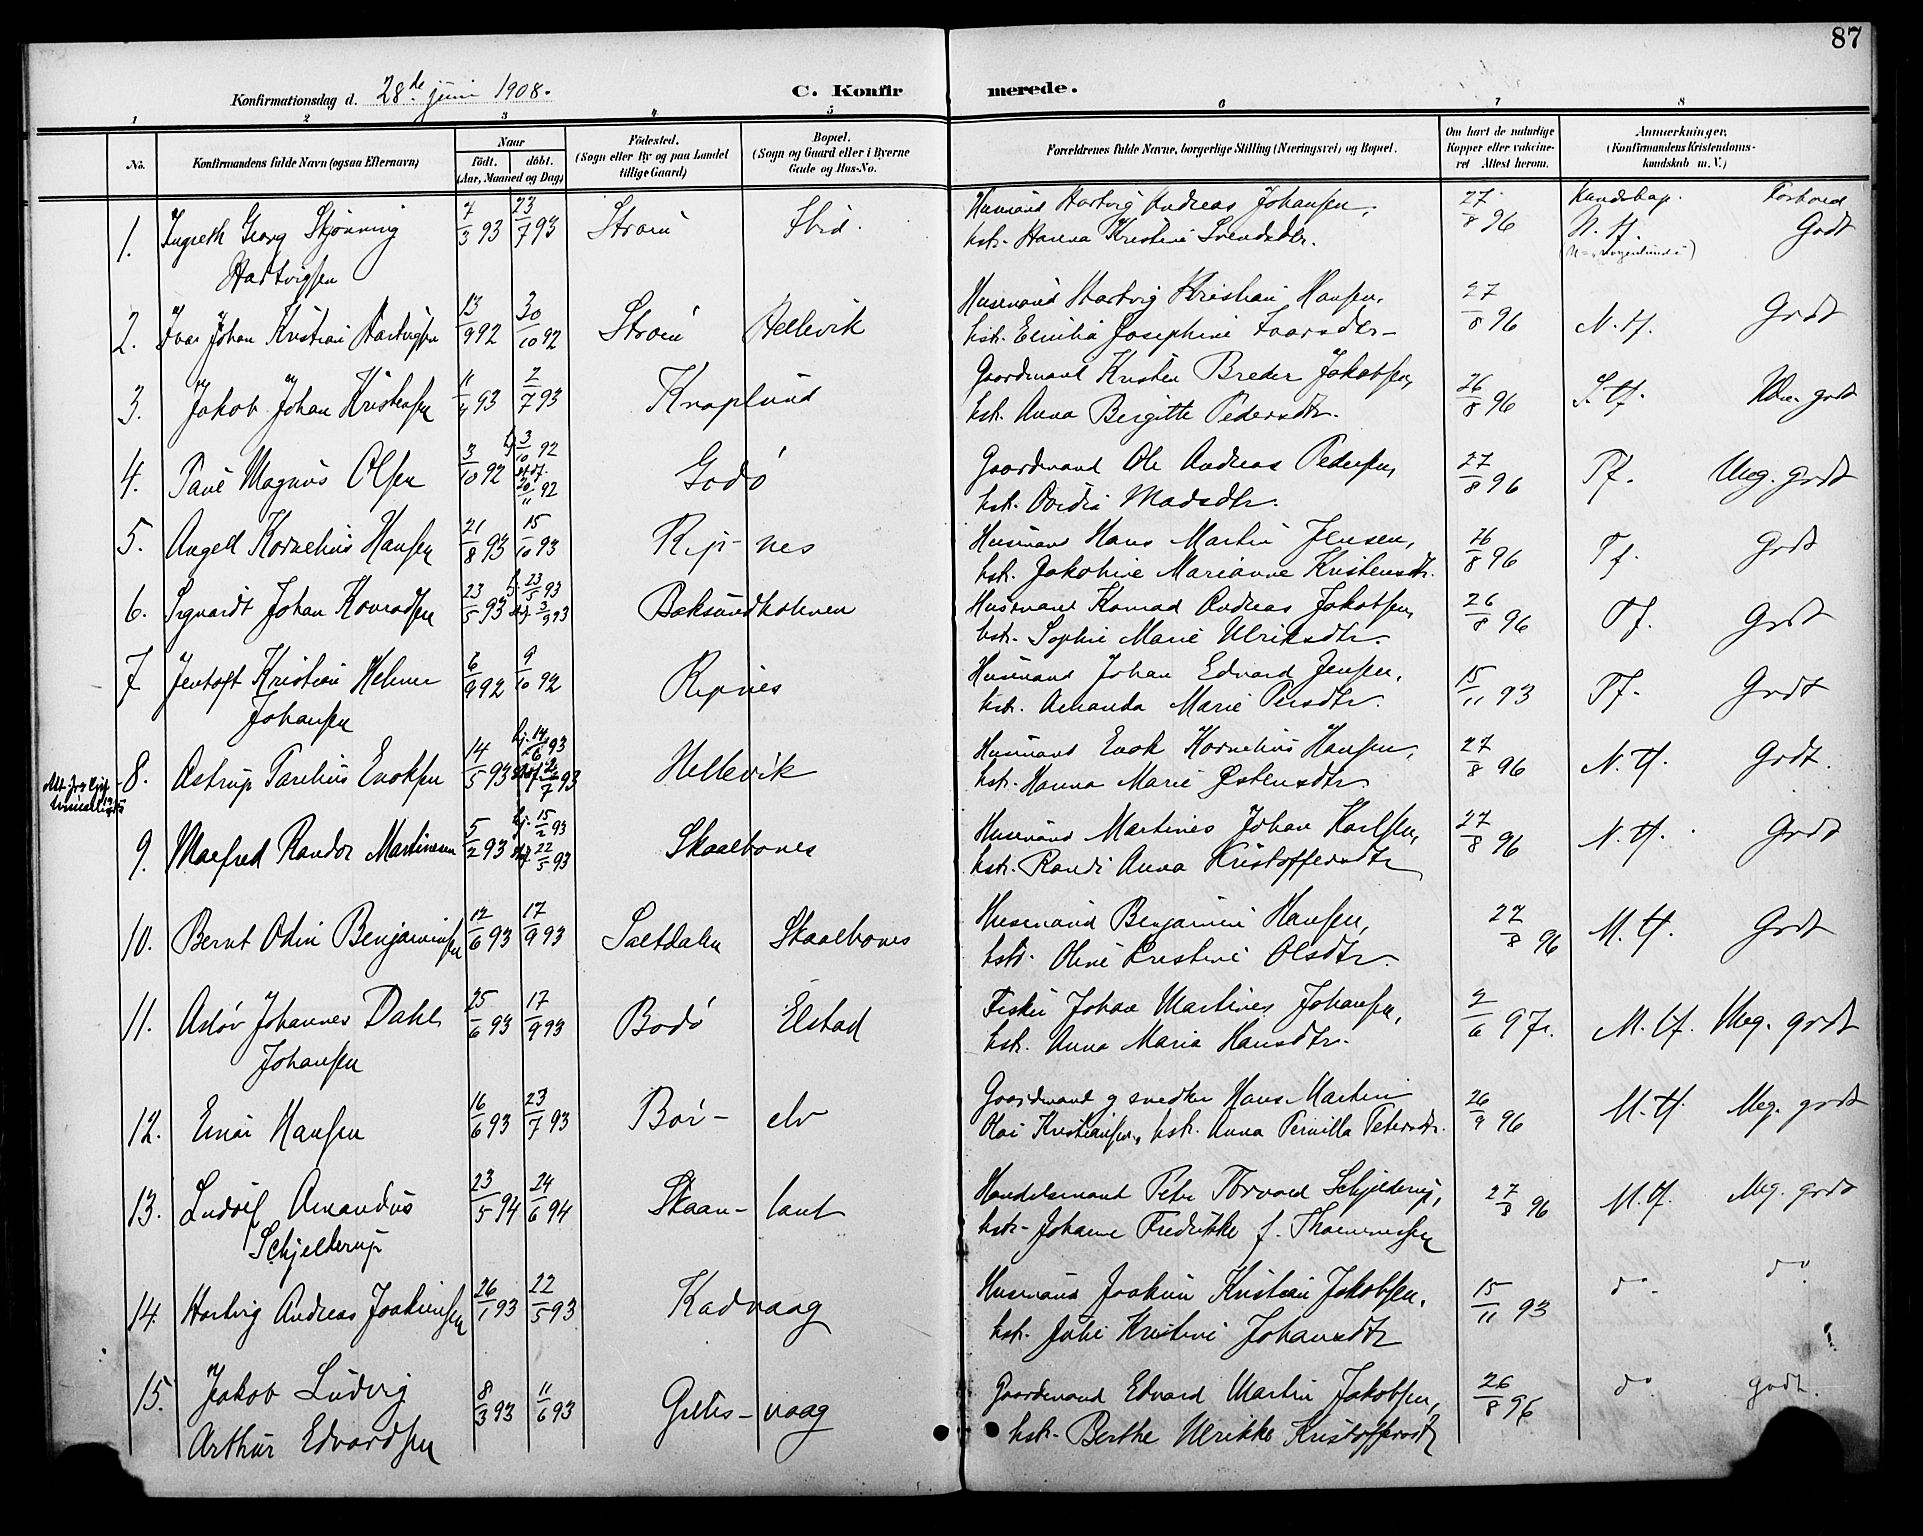 87
Konfirmationsdag d. 28de juni 1908.
C. Konfirmerede.
1 2 3 4 5 6 7 8
No.
Konfirmandens fulde Navn (ogsaa Efternavn)
Naar
født. døbt.
(Aar, Maaned og Dag)
Fødested.
(Sogn eller By og paa Landet
tillige Gaard)
Bopæl.
(Sogn og Gaard eller i Byerne
Gade og Hus-No.
Forældrenes fulde Navne, borgerlige Stilling (Næringsvei) og Bopæl.
Om havt de naturlige
Kopper eller vaccine-
ret Attest herom.
Anmærkninger,
(Konfirmandens Kristendoms-
kundskab m. V.)
Kundskap. Forhold
1. Georg Skjønning 7/3 93 23/7 93 Strøm Ibid. Husmand Hartvig Andreas Johansen, 27/8 96 N. tf. Godt
Hartvigsen hstr. Hanna Kristine Svendsdtr.
2. Ivar Johan Kristian Hartvigsen 13/9 92 30/10 92 Strøm Hellevik Husmand Hartvig Kristian Hansen, 27/8 96 N. tf. Godt
hstr. Emilia Josephine Ivarsdtr
3. Jakob Johan Kristensen 11/4 93 2/7 93 Kraplund Gaardmand Kristen Breder Jakobsen, 26/8 96 S. tf. godt
hstr. Anna Bergitte Pedersdtr.
4. Paul Magnus Olsen 3/10 92 hj. 3/10 92 Godø Gaardmand Ole Andreas Pedersen, 27/8 96 Tf. Meg. godt
stdf. 20/11 92 hstr. Ovidia Madsdtr.
5. Angell Kornelius Hansen 21/8 93 15/10 93 Ripnes Husmand Hans Martin Jensen, 26/8 96 Tf. Godt
hstr. Jakobine Marianne Kristensdtr.
6. Sigvardt Johan Konradsen 23/5 93 hj. 23/5 93 Baksundholmen Husmand Konrad Andreas Jakobsen, 26/8 96 Tf. Godt
stdf. 3/9 93 hstr. Sophie Marie Ulriksdtr.
7 Jentoft Kristian Helmer 6/9 92 9/10 92 Ripnes Husmand Johan Edvard Jensen, 15/11 93 Tf. Godt
Johansen hstr. Amanda Marie Persdtr.
8. Astrup Parelius Enoksen 14/5 93 hj. 14/6 93 Hellevik Husmand Enok Kornelius Hansen, 27/8 96 N. tf. Godt.
hstr. Hanna Marie Østensdtr.
9. Manfred Randor Martinsen 5/2 93 hj. 15/2 93 Skaalbones Husmand Martines Johan Karlsen, 27/8 96 N. tf. Godt
stdf. 22/5 93 hstr. Randi Anna Kristoffersdtr
10. Bernt Odin Benjaminsen 12/6 93 17/9 93 Saltdalen Skaalbones Husmand Benjamin Hansen, 27/8 96 M. tf. Godt
hstr. Oline Kristine Olsdtr.
11. Asløv Johannes Dahl 25/6 93 17/9 93 Bodø Elstad Fisker Johan Martines Johansen, 2/6 97. M. tf. Meg. godt
Johansen hstr. Anna Maria Hansdtr.
12. Einar Hansen 16/6 93 23/7 93 Børelv Gaardmand og snedker Hans Martin 26/9 96 M. tf. Meg. godt
Olai Kristiansen, hstr. Anna Pernilla Petersdtr.
13. Ludolf Amandus 23/5 94 24/6 94 Skaanlant Handelsmand Peter Torvard Schjelderup, 27/8 96 M. tf. Meg. godt
Schjelderup hstr. Johanne Fredrikke f. Thommessen
14. Hartvig Andreas Joakimsen 26/1 93 22/5 93 Kadvaag Husmand Joakim Kristian Jakobsen, 15/11 93 do. do.
hstr. Julie Kristine Johansdtr
15. Jakob Ludvig 8/3 93 11/6 93 Giltisvaag Gaardmand Edvard Martin Jakobsen, 26/8 96 do. godt.
Arthur Edvardsen hstr. Berthe Ulrikke Kristoffersdtr